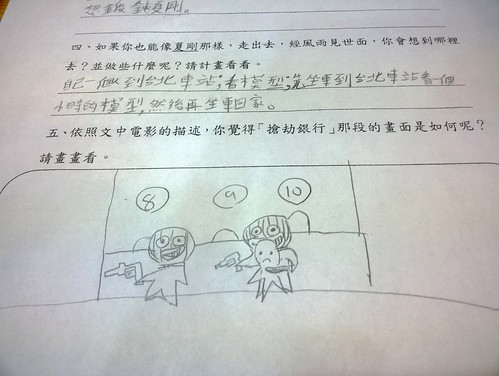 想變 夏剛。
四、如果你也能像夏剛那樣,走出去,經風雨見世面,你會想到哪裡
去?並做些什麼呢?請計畫看看。
自己一個人到台北車站看模型,先坐車到台北車站看一個
小時的模型,然後再坐車回家。
五、依照文中電影的描述,你覺得「搶劫銀行」那段的畫面是如何呢?
請畫畫看。
8 9 10